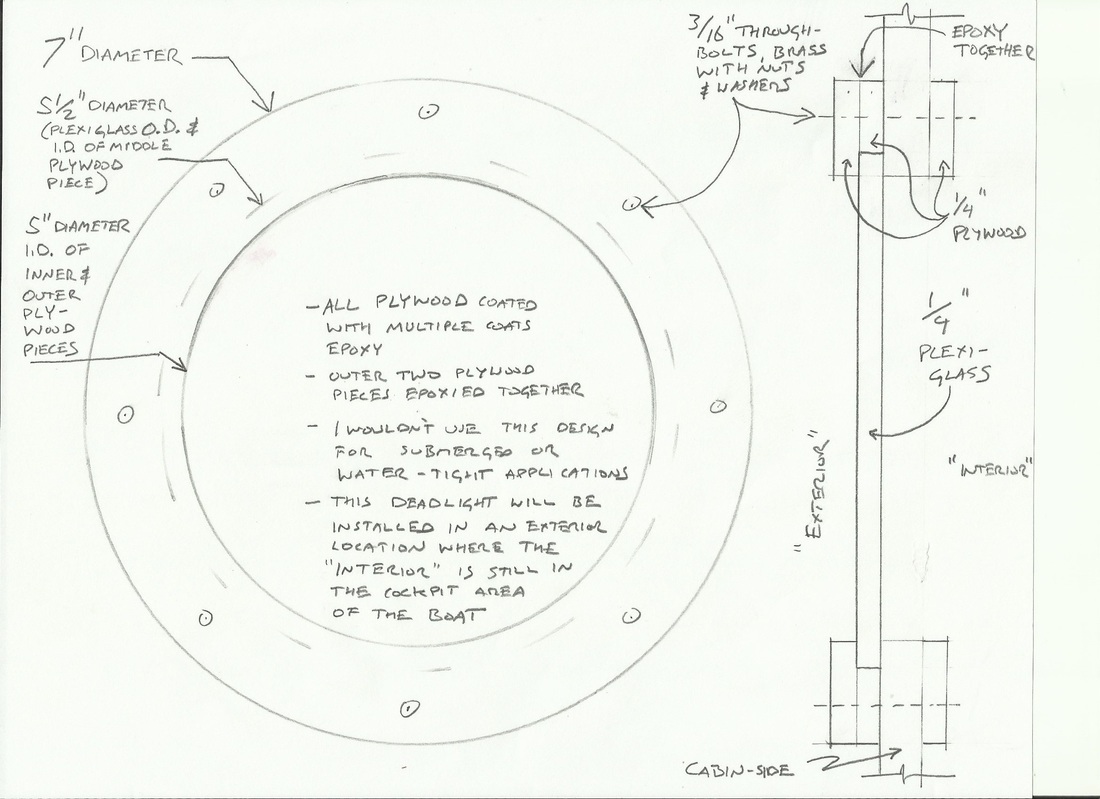 7" DIAMETER
5 1/2" DIAMETER
(PLEXIGLASS O.D. &
I.D. OF MIDDLE
PLYWOOD
PIECE)
5" DIAMETER
I.D. OF
INNER &
OUTER
PLY-
WOOD
PIECES
3/16" THROUGH-
BOLTS, BRASS
WITH NUTS
& WASHERS
EPOXY
TOGETHER
1/4"
PLYWOOD
1/4"
PLEXI-
GLASS
"EXTERIOR"
"INTERIOR"
- ALL PLYWOOD COATED
WITH MULTIPLE COATS
EPOXY
- OUTER TWO PLYWOOD
PIECES EPOXIED TOGETHER
- I WOULDN'T USE THIS DESIGN
FOR SUBMERGED OR
WATER-TIGHT APPLICATIONS
- THIS DEADLIGHT WILL BE
INSTALLED IN AN EXTERIOR
LOCATION WHERE THE
"INTERIOR" IS STILL IN
THE COCKPIT AREA
OF THE BOAT
CABIN-SIDE